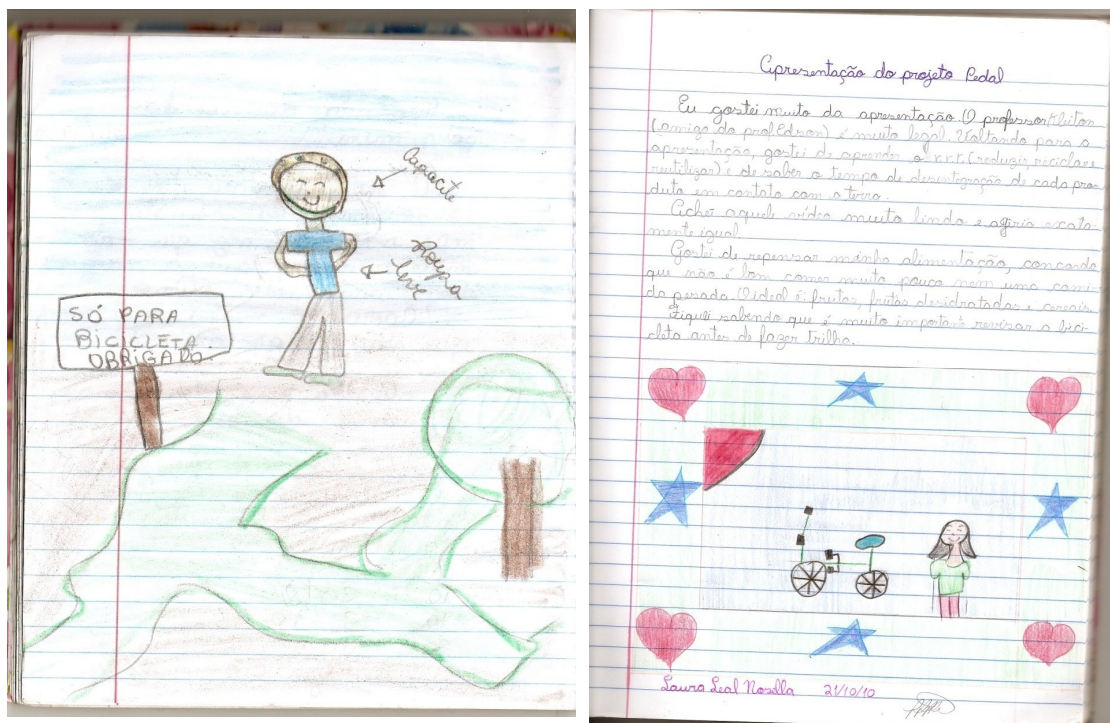 Capacete
Roupa
leve
SÓ PARA
BICICLETA
OBRIGADO
Apresentação do projeto Pedal
Eu gostei muito da apresentação. O professor Kleiton
(amigo do prof. Edson) é muito legal. Voltando para a
apresentação, gostei de aprender o r.r.r. (reduzir, reciclar e
reutilizar) e de saber o tempo de desintegração de cada pro-
duto em contato com a terra.
Achei aquele vídeo muito lindo e agiria exata-
mente igual.
Gostei de repensar minha alimentação, concordo
que não é bom comer muito pouco nem uma comi-
da pesada. O ideal é: frutas, frutas desidratadas e cereais.
Fiquei sabendo que é muito importante revisar a bici-
cleta antes de fazer trilha.
Laura Leal Nosella 21/10/10